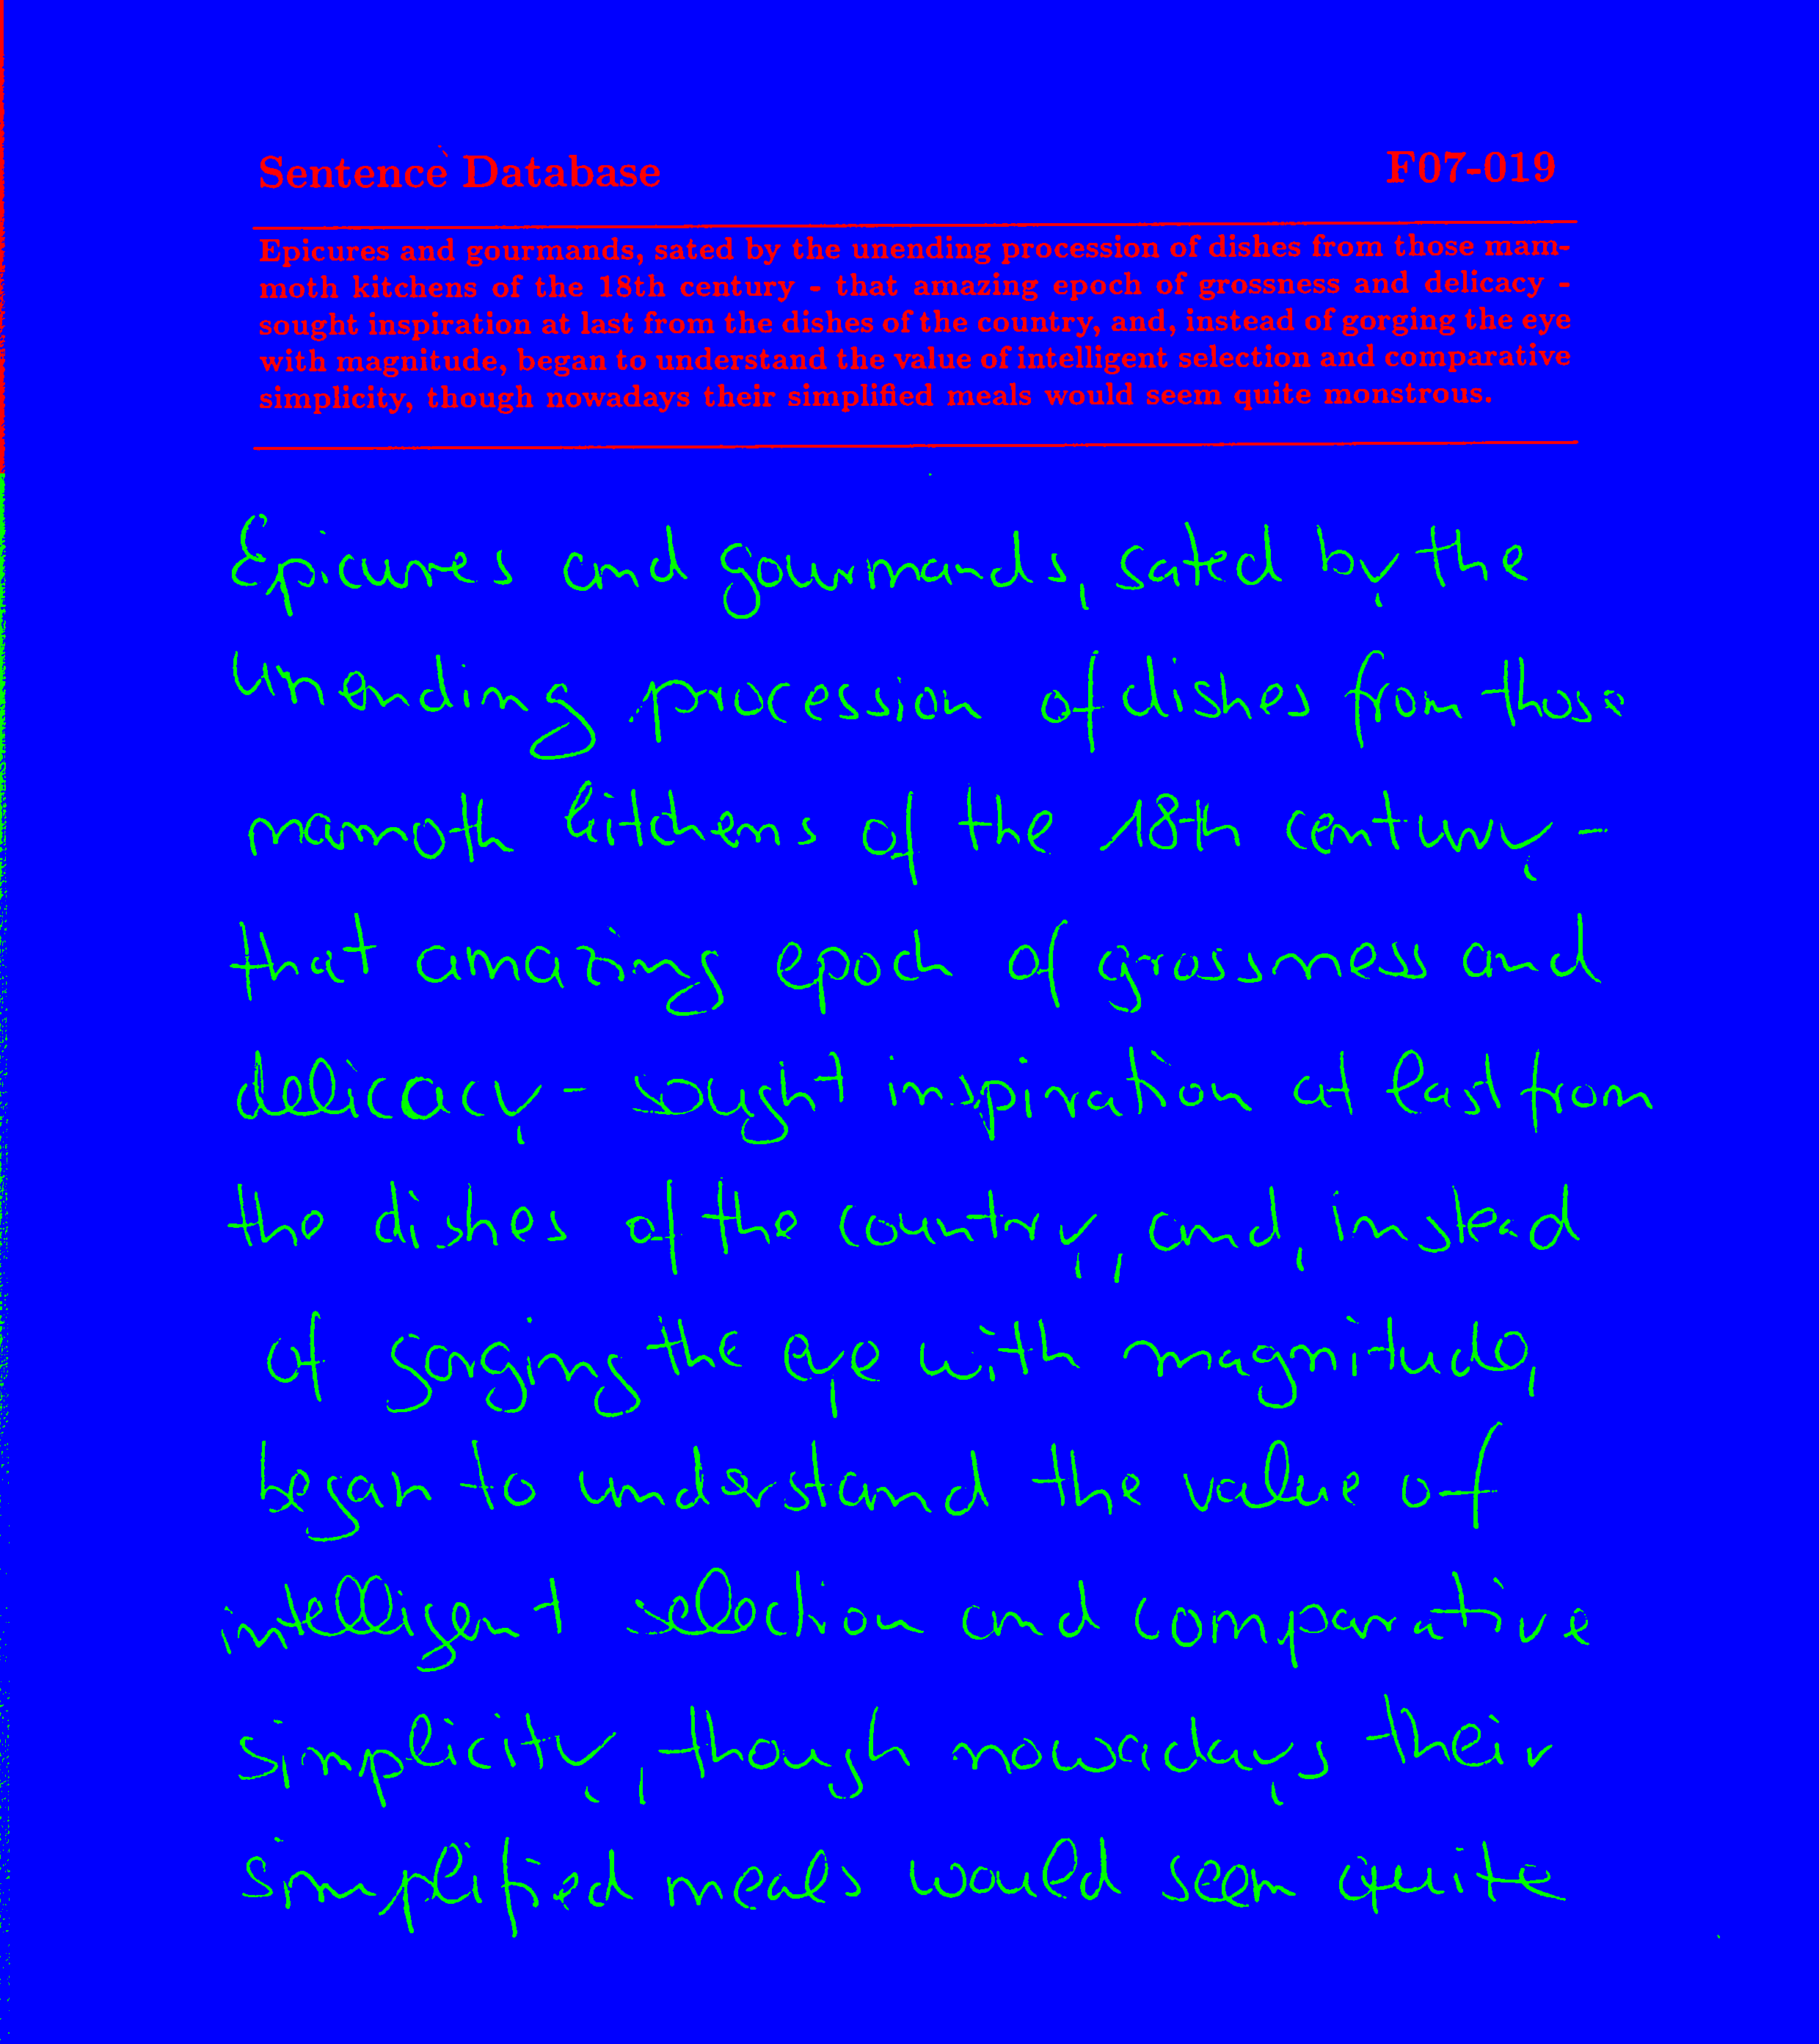 Sentence Database F07-019
Epicures and gourmands, sated by the unending procession of dishes from those mam-
moth kitchens of the 18th century - that amazing epoch of grossness and delicacy -
sought inspiration at last from the dishes of the country, and, instead of gorging the eye
with magnitude, began to understand the value of intelligent selection and comparative
simplicity, though nowadays their simplified meals would seem quite monstrous.
Epicures and gourmands, sated by the
unending procession of dishes from those
mamoth kitchens of the 18th century -
that amazing epoch of grossness and
delicacy - sought inspiration at last from
the dishes of the country, and, instead
of gorging the eye with magnitude,
began to understand the value of
intelligent selection and comparative
simplicity, though nowadays their
simplified meals would seem quite